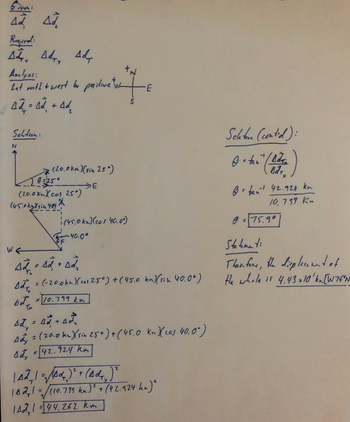 Given:
Δd⃗₁ Δd⃗₂
Required:
Δd⃗Tx Δd⃗Ty Δd⃗T
Analysis:
Let north + west be positive
+N
+W E
S
Δd⃗T = Δd⃗₁ + Δd⃗₂
Solution:
N
(20.0km)(sin 25°)
θ=25°
E
(20.0km)(cos 25°)
(45.0km)(sin 40°)
(45.0km)(cos 40.0°)
40.0°
W
Δd⃗Tx = Δd⃗₁ + Δd⃗₂
Δd⃗Tx = (-20.0km)(cos 25°) + (45.0 km)(sin 40.0°)
Δd⃗Tx = 10.799 km
Δd⃗Ty = Δd⃗₁ + Δd⃗₂
Δd⃗Ty = (20.0km)(sin 25°) + (45.0 km)(cos 40.0°)
Δd⃗Ty = 42.924 km
|Δd⃗T| = √(Δd⃗Tx)² + (Δd⃗Ty)²
|Δd⃗T| = √(10.799 km)² + (42.924 km)²
|Δd⃗T| = 44.262 km
Solution (cont'd):
θ = tan⁻¹ (Δd⃗Ty / Δd⃗Tx)
θ = tan⁻¹ 42.924 km / 10.799 km
θ = 75.9°
Statement:
Therefore, the displacement of
the whale is 4.43x10¹km [W76°N]